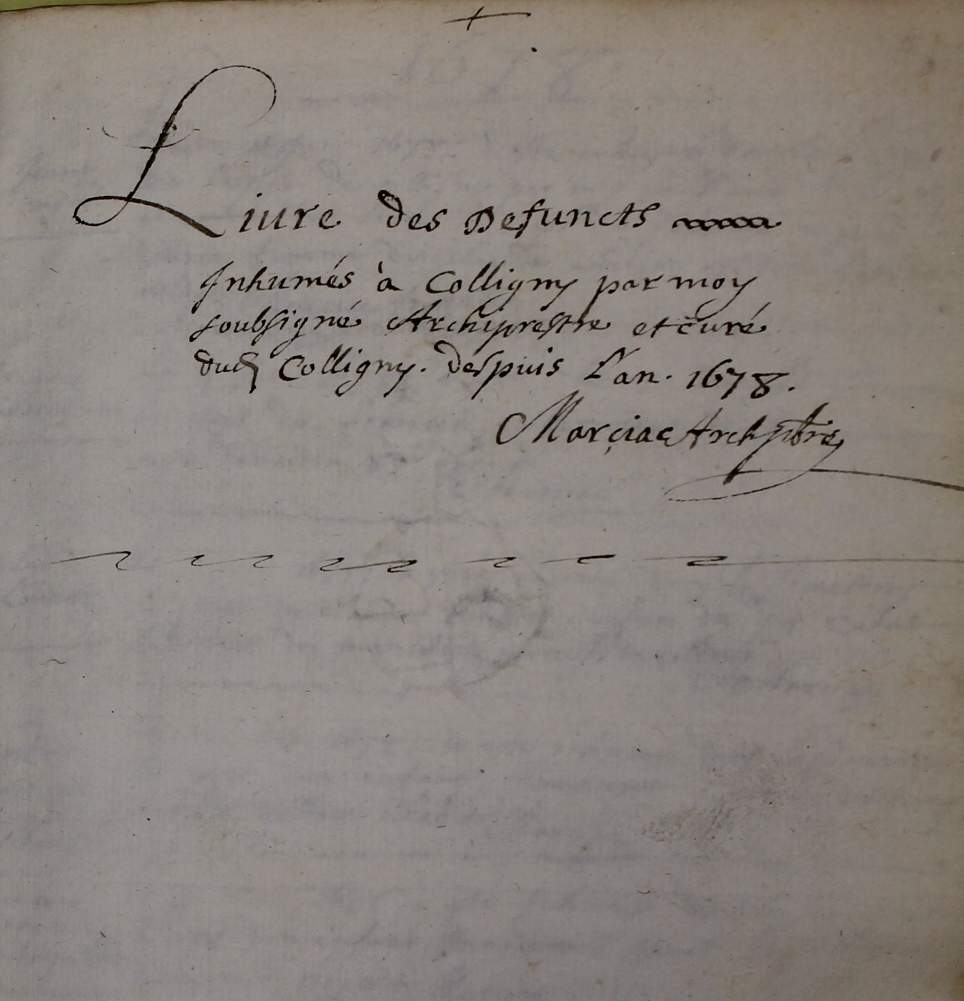 Liure des Defuncts
Inhumés à Colligny par moy
soubsigné Archiprestre et curé
dud Colligny. despuis L'an. 1678.
Marciac Archpbre